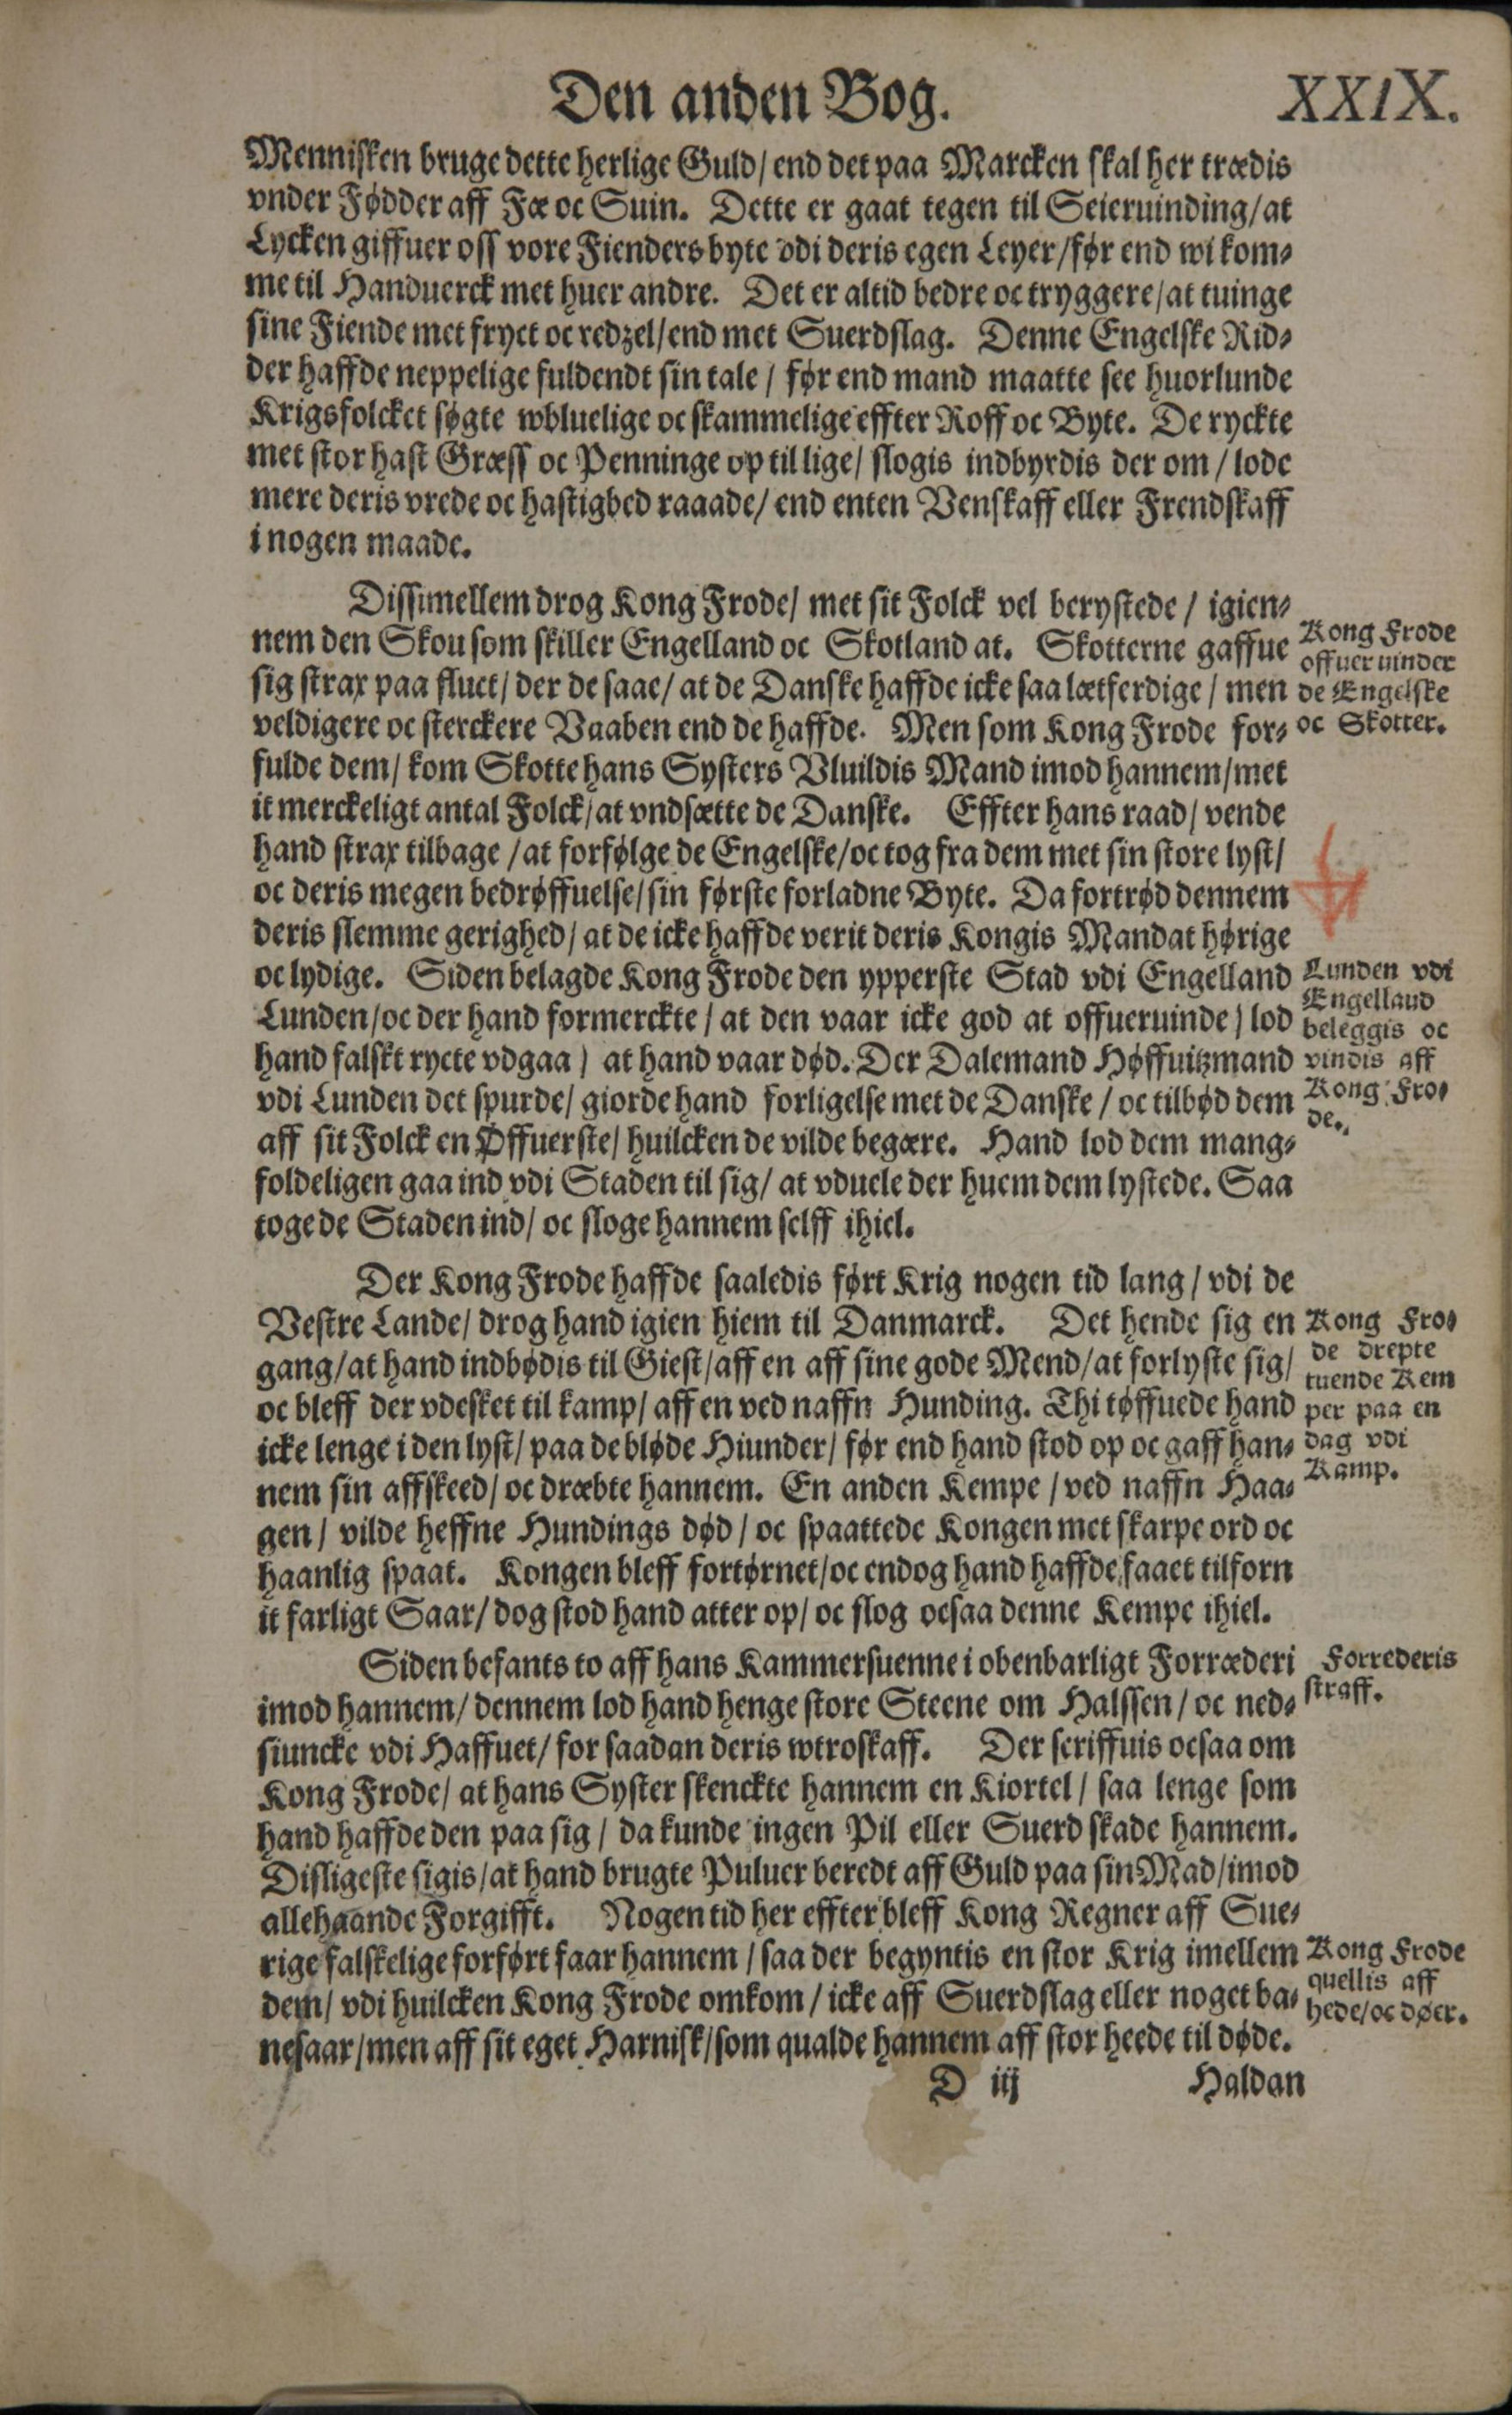 Den anden Bog. XXIX.
Mennisken bruge dette herlige Guld/ end det paa Marcken skal her trædis
vnder Fødder aff Fæ oc Suin. Dette er gaat tegen til Seieruinding/ at
Lycken giffuer oss vore Fienders byte vdi deris egen Leyer/ før end wi kom⸗
me til Handuerck met huer andre. Det er altid bedre oc tryggere/ at tuinge
sine Fiende met fryct oc redzel/ end met Suerdslag. Denne Engelske Rid⸗
der haffde neppelige fuldendt sin tale / før end mand maatte see huorlunde
Krigsfolcket søgte wbluelige oc skammelige effter Roff oc Byte. De ryckte
met stor hast Græss oc Penninge op til lige/ slogis indbyrdis der om / lode
mere deris vrede oc hastighed raaade/ end enten Venskaff eller Frendskaff
i nogen maade.
Dissimellem drog Kong Frode/ met sit Folck vel berystede / igien⸗
nem den Skou som skiller Engelland oc Skotland at. Skotterne gaffue
sig strax paa fluct/ der de saae/ at de Danske haffde icke saa lætferdige / men
veldigere oc sterckere Vaaben end de haffde. Men som Kong Frode for⸗
fulde dem/ kom Skotte hans Systers Vluildis Mand imod hannem/ met
it merckeligt antal Folck/ at vndsætte de Danske. Effter hans raad/ vende
hand strax tilbage / at forfølge de Engelske/ oc tog fra dem met sin store lyst/
oc deris megen bedrøffuelse/ sin første forladne Byte. Da fortrød dennem
deris slemme gerighed/ at de icke haffde verit deris Kongis Mandat hørige
oc lydige. Siden belagde Kong Frode den ypperste Stad vdi Engelland
Lunden/ oc der hand formerckte / at den vaar icke god at offueruinde / lod
hand falskt rycte vdgaa / at hand vaar død. Der Dalemand Høffuitzmand
vdi Lunden det spurde/ giorde hand forligelse met de Danske / oc tilbød dem
aff sit Folck en Øffuerste/ huilcken de vilde begære. Hand lod dem mang⸗
foldeligen gaa ind vdi Staden til sig/ at vduele der huem dem lystede. Saa
toge de Staden ind/ oc sloge hannem selff ihiel.
Der Kong Frode haffde saaledis ført Krig nogen tid lang / vdi de
Vestre Lande/ drog hand igien hiem til Danmarck. Det hende sig en
gang/ at hand indbødis til Giest/ aff en aff sine gode Mend/ at forlyste sig/
oc bleff der vdesket til kamp/ aff en ved naffn Hunding. Thi tøffuede hand
icke lenge i den lyst/ paa de bløde Hiunder/ før end hand stod op oc gaff han⸗
nem sin affskeed/ oc dræbte hannem. En anden Kempe / ved naffn Haa⸗
gen/ vilde heffne Hundings død / oc spaattede Kongen met skarpe ord oc
haanlig spaat. Kongen bleff fortørnet/ oc endog hand haffde faaet tilforn
it farligt Saar/ dog stod hand atter op/ oc slog ocsaa denne Kempe ihiel.
Siden befants to aff hans Kammersuenne i obenbarligt Forræderi
imod hannem/ dennem lod hand henge store Steene om Halssen/ oc ned⸗
siuncke vdi Haffuet/ for saadan deris wtroskaff. Der scriffuis ocsaa om
Kong Frode/ at hans Syster skenckte hannem en Kiortel / saa lenge som
hand haffde den paa sig / da kunde ingen Pil eller Suerd skade hannem.
Disligeste sigis/ at hand brugte Puluer beredt aff Guld paa sin Mad/ imod
allehaande Forgifft. Nogen tid her effter bleff Kong Regner aff Sue⸗
rige falskelige forført faar hannem / saa der begyntis en stor Krig imellem
dem/ vdi huilcken Kong Frode omkom / icke aff Suerdslag eller noget ba⸗
nesaar/ men aff sit eget Harnisk/ som qualde hannem aff stor heede til døde.
D iij Haldan
Kong Frode
offueruinder
de Engelske
oc Skotter.
Lunden vdi
Engelland
beleggis oc
vindis aff
Kong Fro⸗
de.
Kong Fro⸗
de drepte
tuende Kem
per paa en
dag vdi
Kamp.
Forrederis
straff.
Kong Frode
quellis aff
hede/ oc døer.